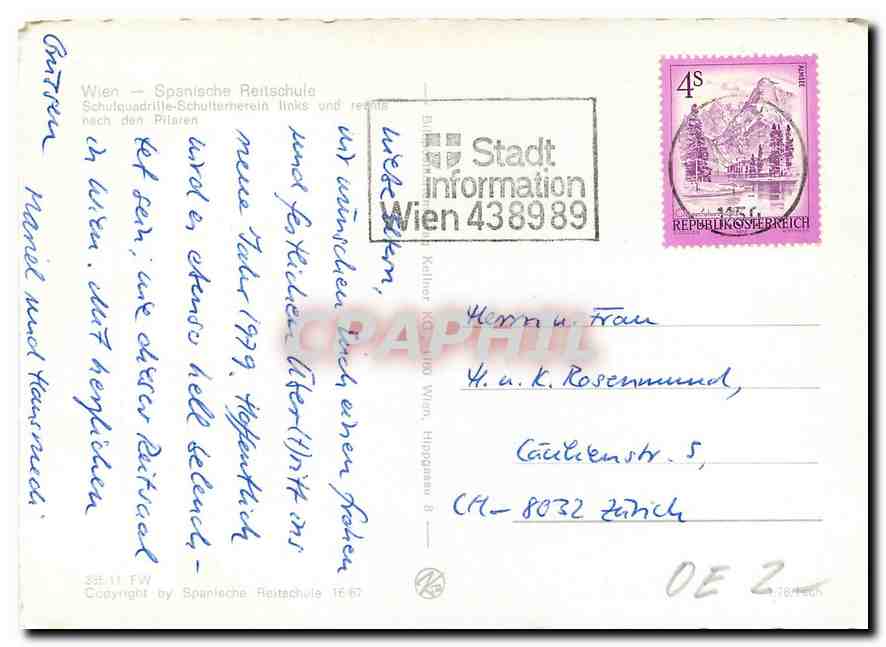 Wien — Spanische Reitschule
Schulquadrille-Schulterherein links und rechts
nach den Pilaren
Liebe Eltern,
wir wünschen Euch einen frohen
und festlichen Über(t)ritt ins
neue Jahr 1979. Hoffentlich
wird es ebenso hell beleuch-
tet sein, wie dieser Reitsaal
in Wien. Mit herzlichen
Grüssen
und Hansruedi
Stadt
information
Wien 438989
4S
ALMSEE
1150
REPUBLIK ÖSTERREICH
Kellner KG, 1160 Wien, Hippgasse 8
CPAPHIL
Herrn u. Frau
H. u. K. Rosenmund,
Cäcilienstr. 5,
CH-8032 Zürich
OE 2-
395/11 FW
Copyright by Spanische Reitschule 16 67